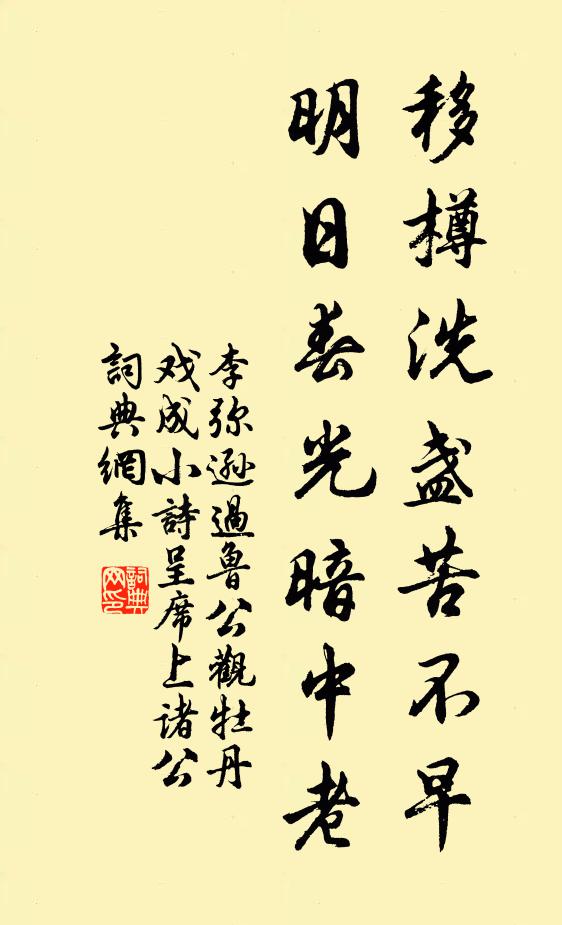 移樽洗盏苦不早
明日春光暗中老
李弥遜過魯公觀牡丹
戏成小詩呈席上诸公
詞典網集
詞典網印